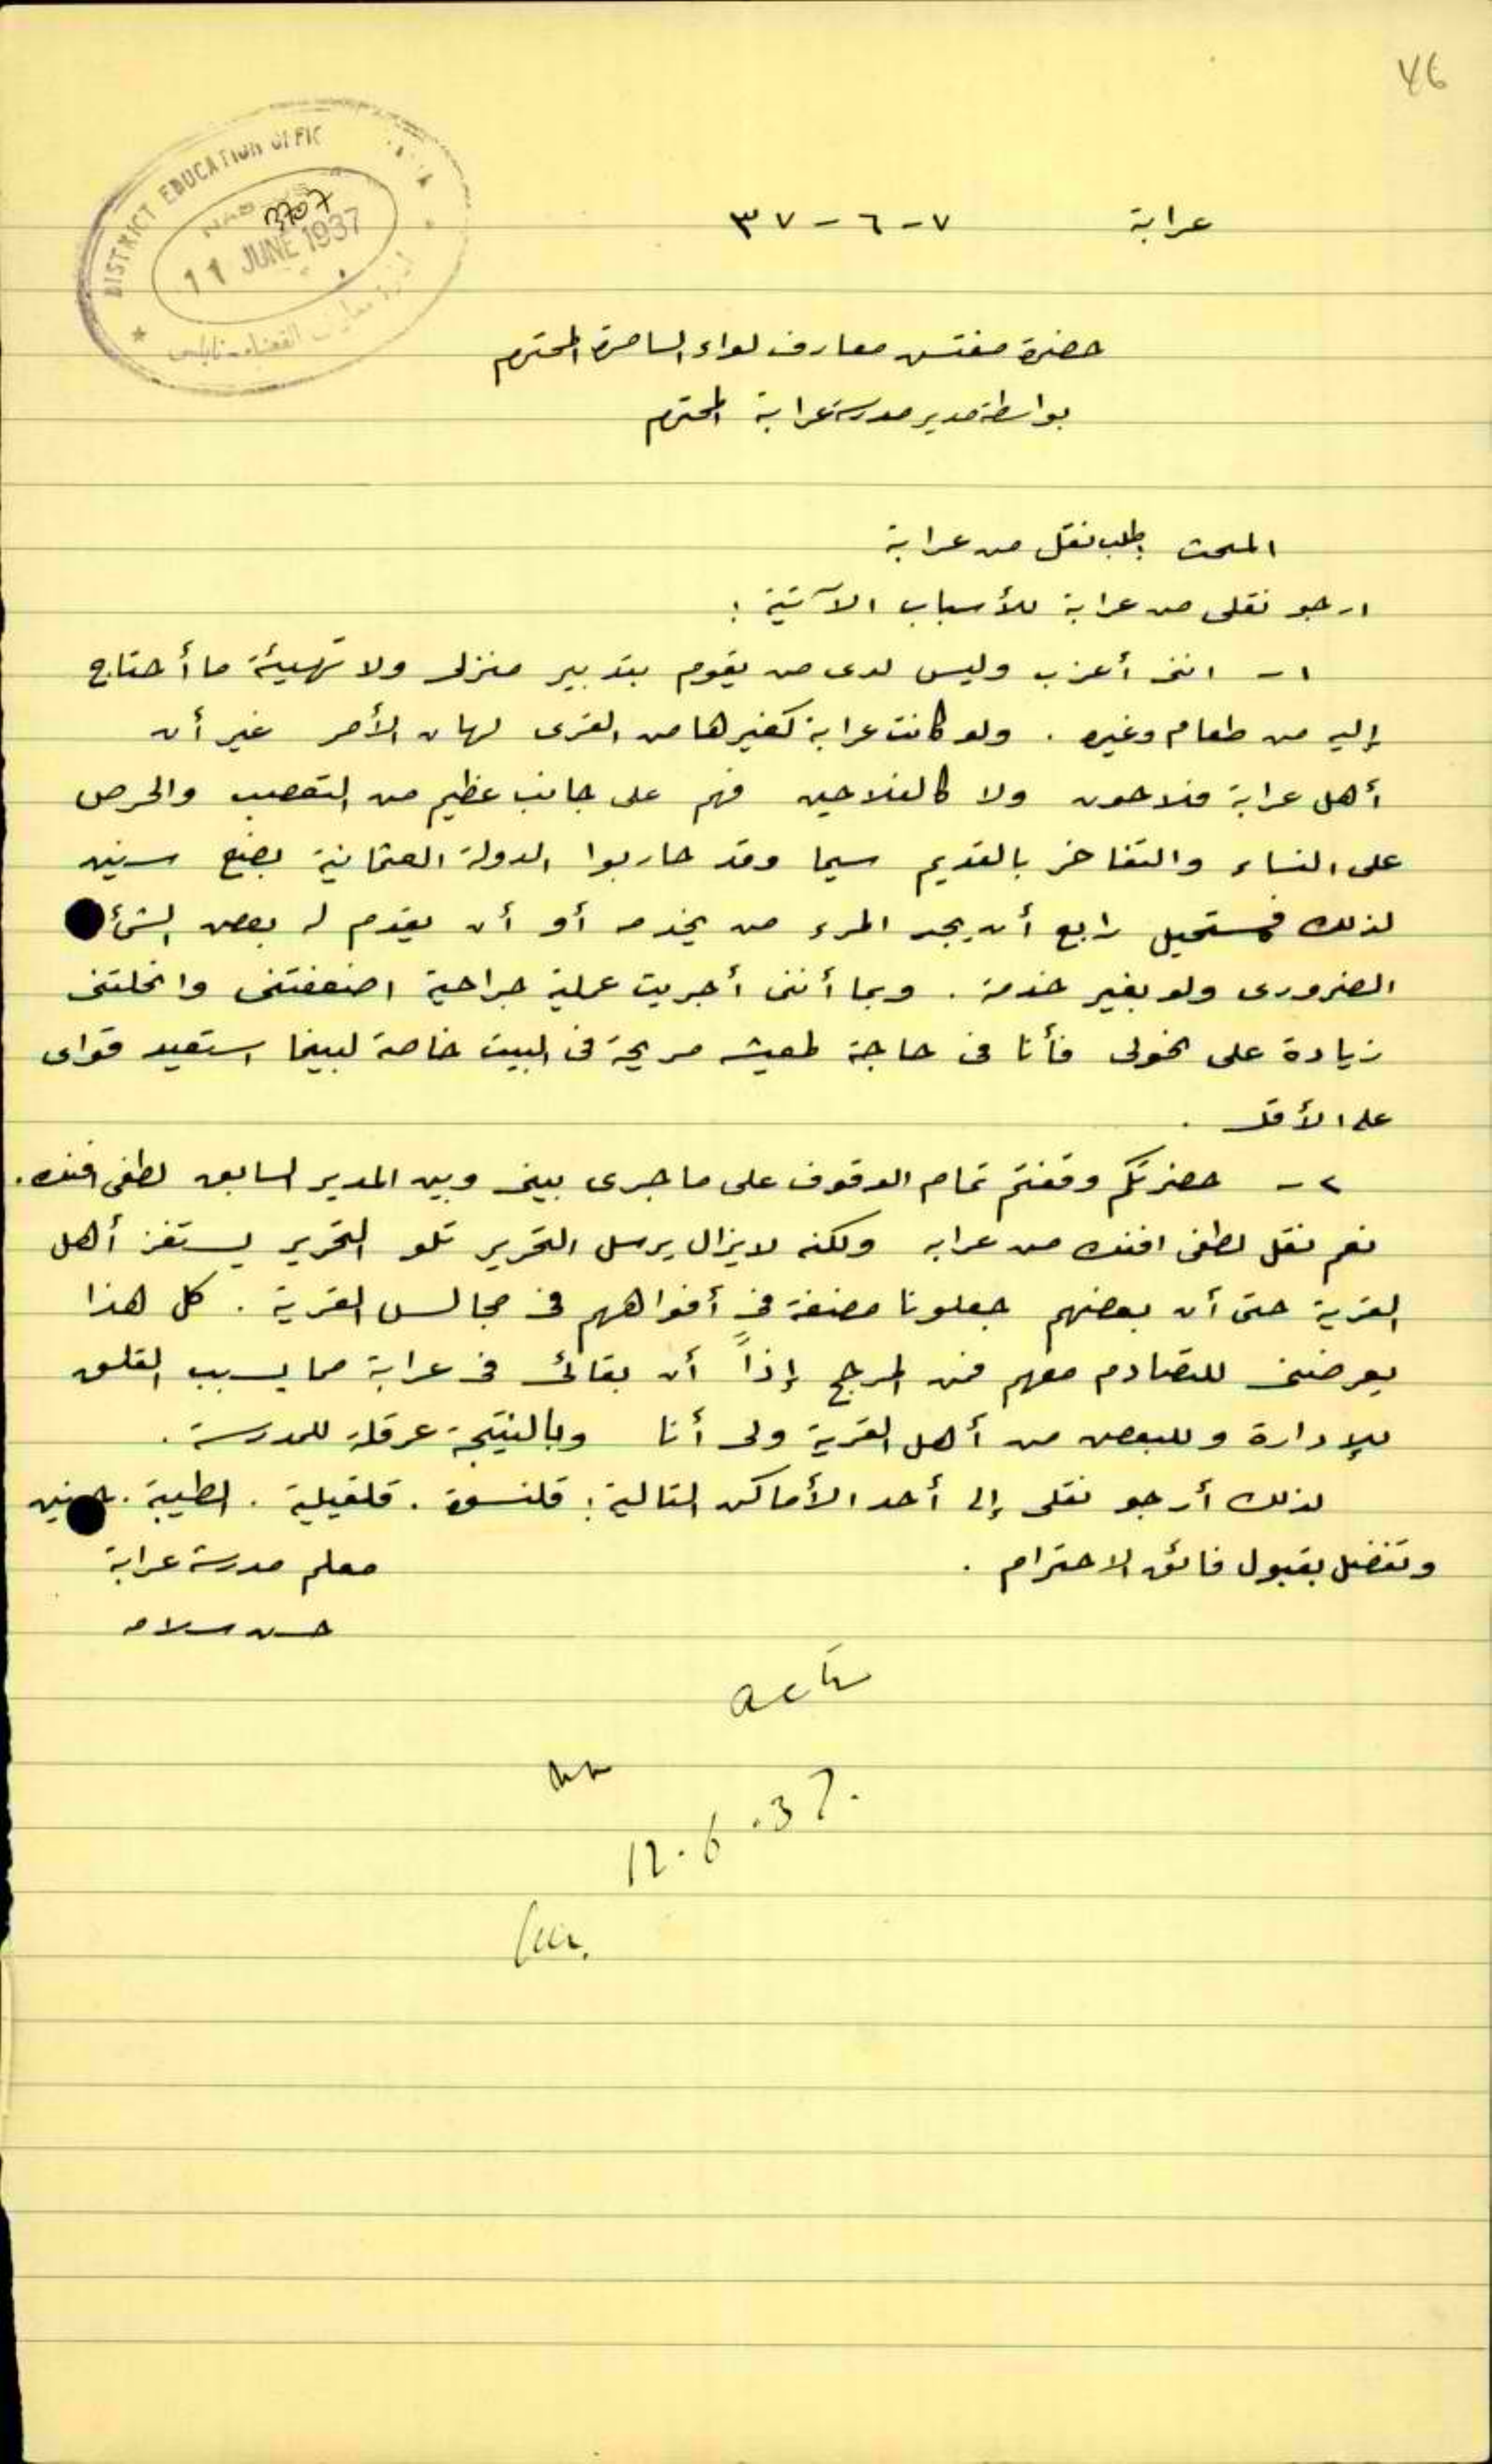 46
DISTRICT EDUCATION OFFIC
NAB
3707
11 JUNE 1937
عرابة ٧-٦-٣٧
حضرة مفتش معارف لواء السامرة المحترم
بواسطة مدير مدرسة عرابة المحترم
المبحث طلب نقل من عرابة
ارجو نقلى من عرابة للأسباب الآتية :
١- اننى أعزب وليس لدى من يقوم بتدبير منزلى ولا تهيئة ما أحتاج
إليه من طعام وغيره . ولو كانت عرابة كغيرها من القرى لهان الأمر غير أن
أهل عرابة فلاحون ولا كالفلاحين فهم على جانب عظيم من التعصب والحرص
على النساء والتفاخر بالقديم سيما وقد حاربوا الدولة العثمانية بضع سنين
لذلك فمستحيل أن يجد المرء من يخدمه أو أن يقدم له بعض الشئ
الضرورى ولو بغير خدمة . وبما أننى أجريت عملية جراحية اضعفتنى وانحلتنى
زيادة على نحولى فأنا فى حاجة لمعيشه مريحة فى البيت خاصة لبينما استعيد قواى
على الأقل .
٢- حضرتكم وقفتم تمام الوقوف على ما جرى بينى وبين المدير السابق لطفى افندى .
نعم نقل لطفى افندى من عرابه ولكنه لا يزال يرسل التحرير تلو التحرير يستفز أهل
القرية حتى أن بعضهم جعلونا مضغة فى أفواههم فى مجالس القرية . كل هذا
يعرضنى للتصادم معهم فمن المرجح إذاً أن بقائى فى عرابة مما يسبب القلق
للإدارة وللبعض من أهل القرية ولى أنا وبالنتيجة عرقلة للمدرسة .
لذلك أرجو نقلى إلى أحد الأماكن التالية : قلنسوة . قلقيلية . الطيبة . جنين
وتفضل بقبول فائق الاحترام .
معلم مدرسة عرابة
حسن سلامه
ack
12.6.37.